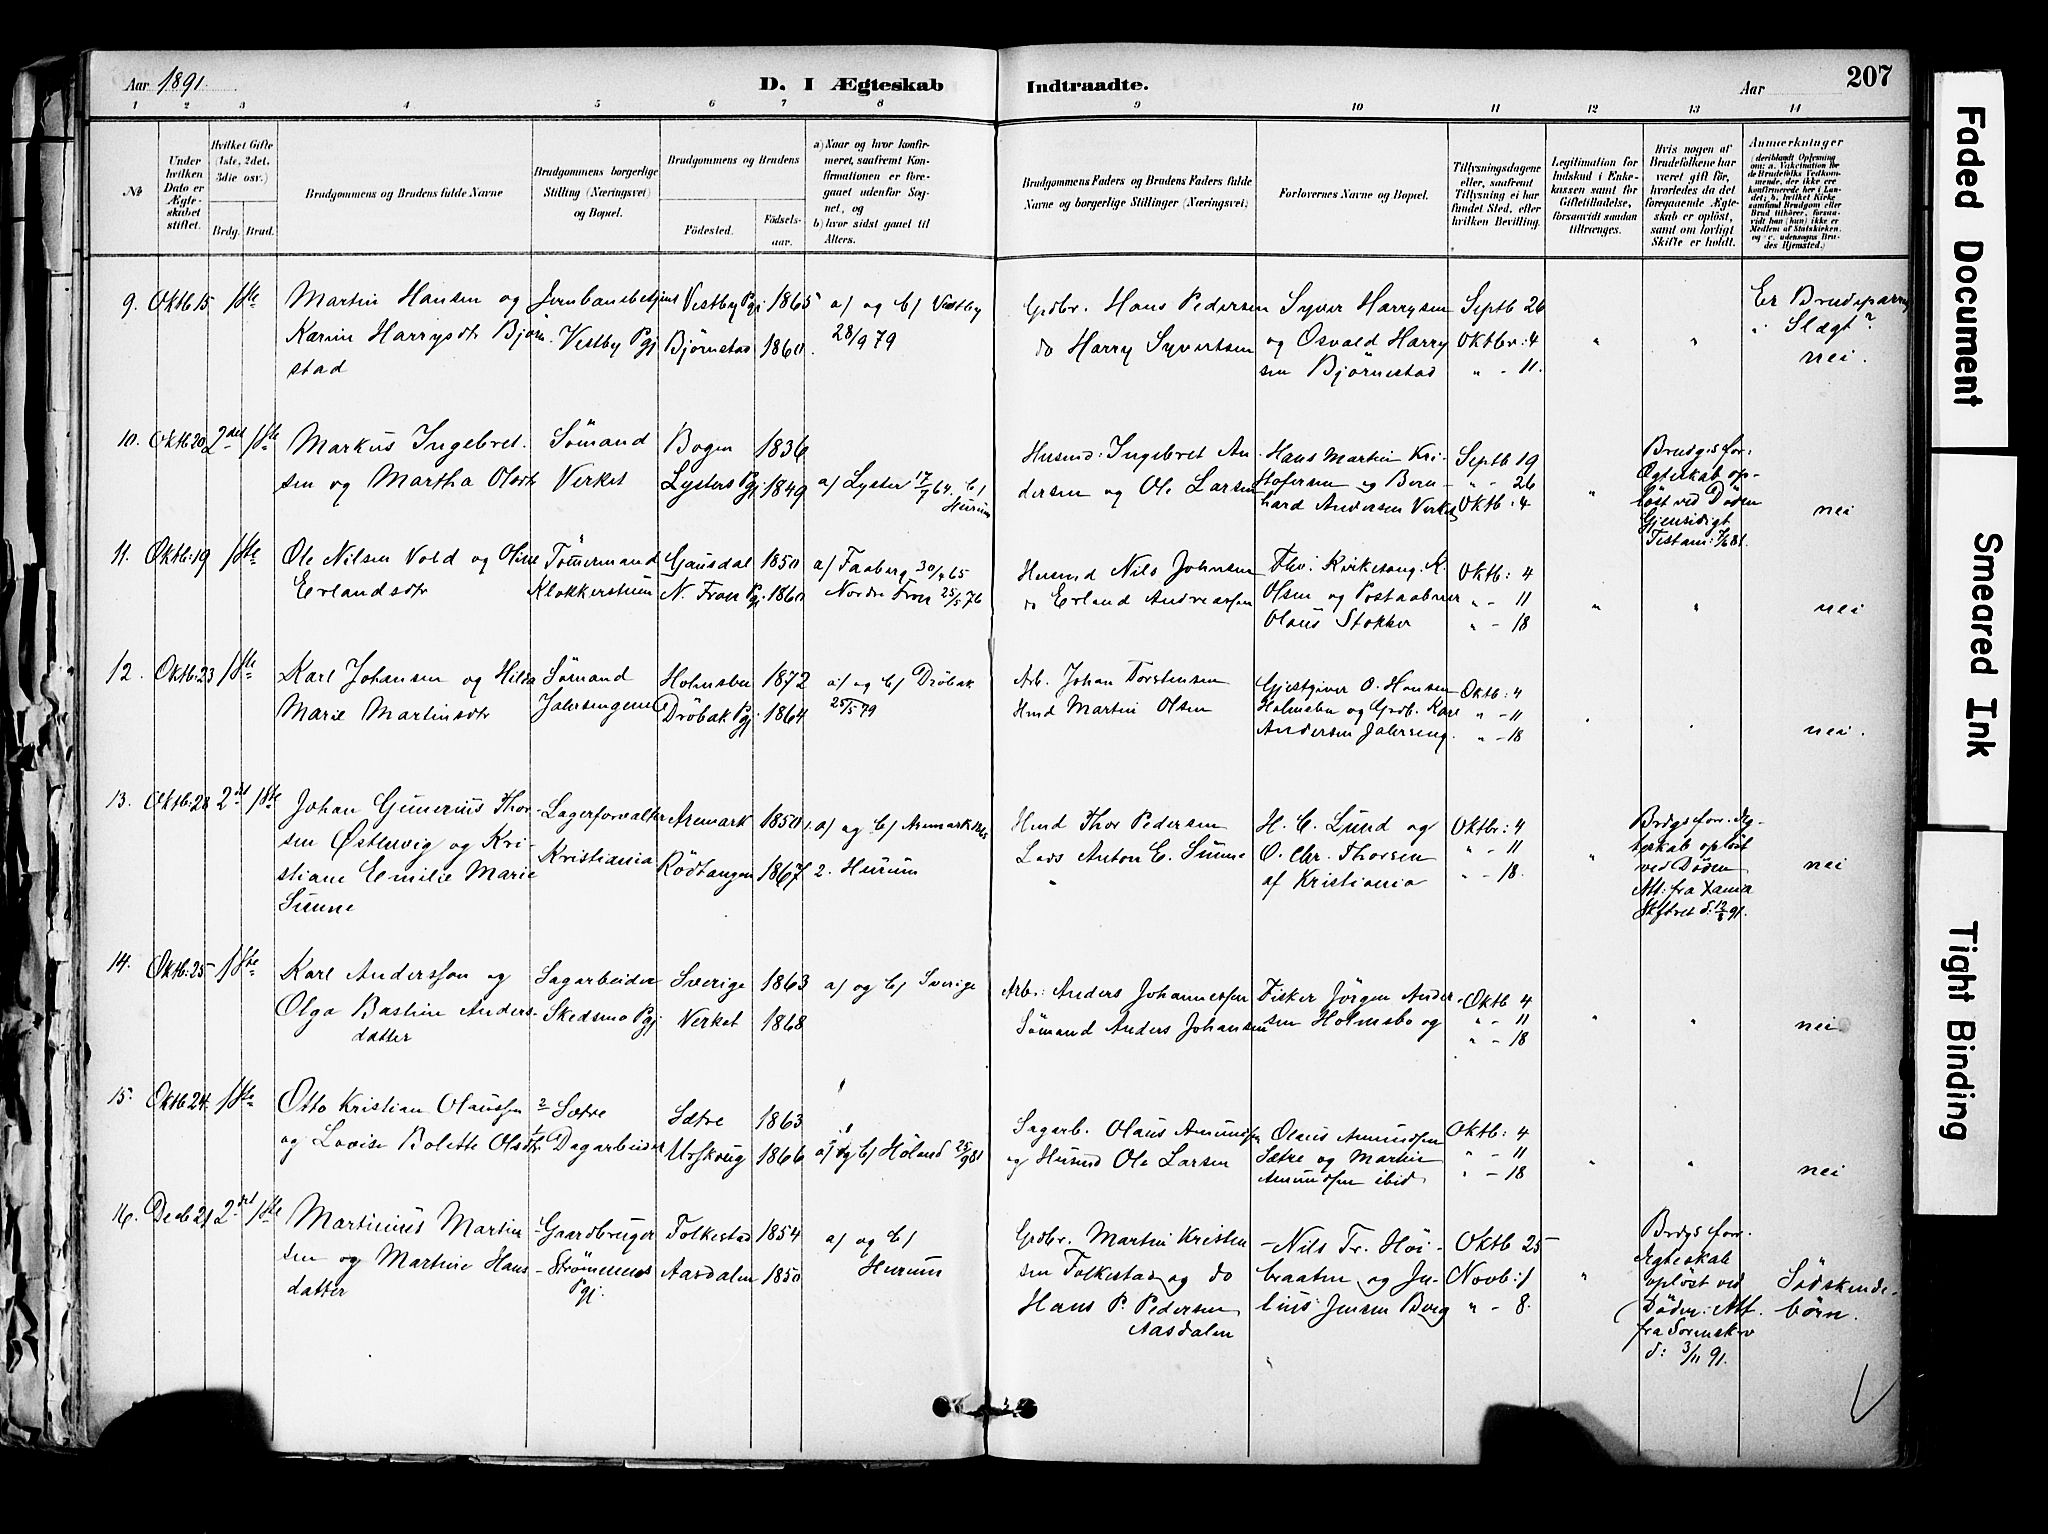 Aar 1891
D. I Ægteskab
Indtraadte.
Aar
207
1 2 3 4 5 6 7 8 9 10 11 12 13 14
No
Under hvilken Dato er Ægteskabet stiftet.
Hvilket Gifte (1ste, 2det, 3die osv.)
Brdg. Brud.
Brudgommens og Brudens fulde Navne
Brudgommens borgerlige Stilling (Næringsvei) og Bopæl.
Brudgommens og Brudens
Födested.
Födsels-aar.
a) Naar og hvor konfirmeret, saafremt Konfirmationen er foregaaet udenför Sognet, og
b) hvor sidst gaaet til Alters.
Brudgommens Faders og Brudens Faders fulde Navne og borgerlige Stillinger (Næringsvei)
Forlovernes Navne og Bopæl.
Tillysningsdagene eller, saafremt Tillysning ei har fundet Sted, efter hvilken Bevilling.
Legitimation for Indskud i Enkekassen samt for Giftetilladelse, forsaavidt saadan tiltrænges.
Hvis nogen af Brudefolkene har været gift för, hvorledes da det foregaaende Ægteskab er oplöst, samt om lovligt Skifte er holdt.
Anmærkninger
9. Oktb 15 1ste
Martin Hansen og
Karin Harrysdtr Björn
stad
Vestby Pgj
Vestby Pgj 1865
Björnstad 1860.
a) og b) Vestby
28/9 79
Grdbr. Hans Pedersen
do Harry Syvertsen
Syver Harrysen
og Osvald Harry
sen Björnestad
Septb 26
Oktbr: 4
" - 11.
Er Brudeparret
i Slægt?
nei.
10. Oktb 20 2det 1ste
Markus Ingebret.
sen og Martha Olsdtr
Sömand
Verket
Bogen 1836
Lysters Pgj 1849
a) Lyster 17/7 64. b)
Hurum
Husmd: Ingebret An
dersen og Ole Larsen
Hans Martin Kri-
stofersen og Bern-
hard Andersen Verket
Septb 19
" - 26
Oktb: 4
Brudgs for:
Ægteskab op-
löst ved Döden
Gjensidigt
nei
11. Oktb: 19 1ste
Ole Nilsen Vold og Oline
Erlandsdtr
Tömermand
Klokkerstuen
Gausdal 1850
N. Fron Pgj 1860
a) Faaberg 30/7 65
Nordre Fron 25/5 76
Husmd Nils Johnsen
do Erland Andreassen
Fhv. Kirkesang. K.
Olsen og Postaabner
Olaus Stokker
Oktb: 4
" - 11
" - 18
nei
12. Oktb: 23 1ste
Karl Johansen og Hilda
Marie Martinsdtr
Sömand
Holmsbu 1872
Dröbak Pgj. 1864
a) og b) Dröbak
25/5 79
Arb. Johan Torstensen
Hmd Martin Olsen
Gjestgiver O. Hansen
Holmsbu og Grdb. Karl
Andersen
Oktb: 4
" - 11
" - 18
nei.
13. Oktb: 28 2det 1ste
Johan Gunerius Thor-
sen Östervig og Kri-
stiane Emilie Marie
Sunne
Lagerforvalter
Kristiania
Aremark 1850
Rödtangen 1867
a) og b) Aremark 1865
2. Hurum
Hmd Thor Pedersen
Lods Anton E. Sunne
H. C. Lund og
O. Chr. Thorsen
af Kristiania
Oktbr: 4
" - 11
" - 18.
Brdgs for. Æg-
teskab oplöst
ved Döden
nei
14. Oktb: 25 1ste
Karl Andersson og
Olga Bastine Anders-
datter
Sagarbeider
Skedsmo Pgj
Sverige 1863
Verket 1868
a) og b) Sverige
Arb: Anders Johannessen
Sömand Anders Johansen
Fisker Jörgen Ander-
sen Holmsbo og
Oktb 4
" - 11
" - 18
nei
15. Oktb 24. 1ste
Otto Kristian Olaussen
og Lovise Bolette Olsdtr.
Sætre
Dagarbeider
Sætre 1863
Urskoug 1866
a) og b) Höland 25/9 81
Sagarb. Olaus Amundsen
og Husmd Ole Larsen
Olaus Amundsen
Sætre og Martin
Amundsen ibid
Oktb: 4
" - 11
" - 18
nei
16. Decb 21 2det 1ste
Martinius Martin
sen og Martine Hans
datter
Gaardbruger
Strömmens
Pgj.
Folkestad 1854
Aasdalen 1850
a) og b)
Hurum
Grdbr. Martin Kristen
sen Folkestad og do
Hans P. Pedersen
Aasdalen
Nils Fr. Höi-
braaten og Ju-
lius Jensen Berg
Oktb 25
Novb: 1
" - 8.
Brdgs forr.
Ægteskab
oplöst ved
Döden: Att.
fra Sorenskrv
d: 3/11 91.
Södskende-
börn.
Faded Document
Smeared Ink
Tight Binding